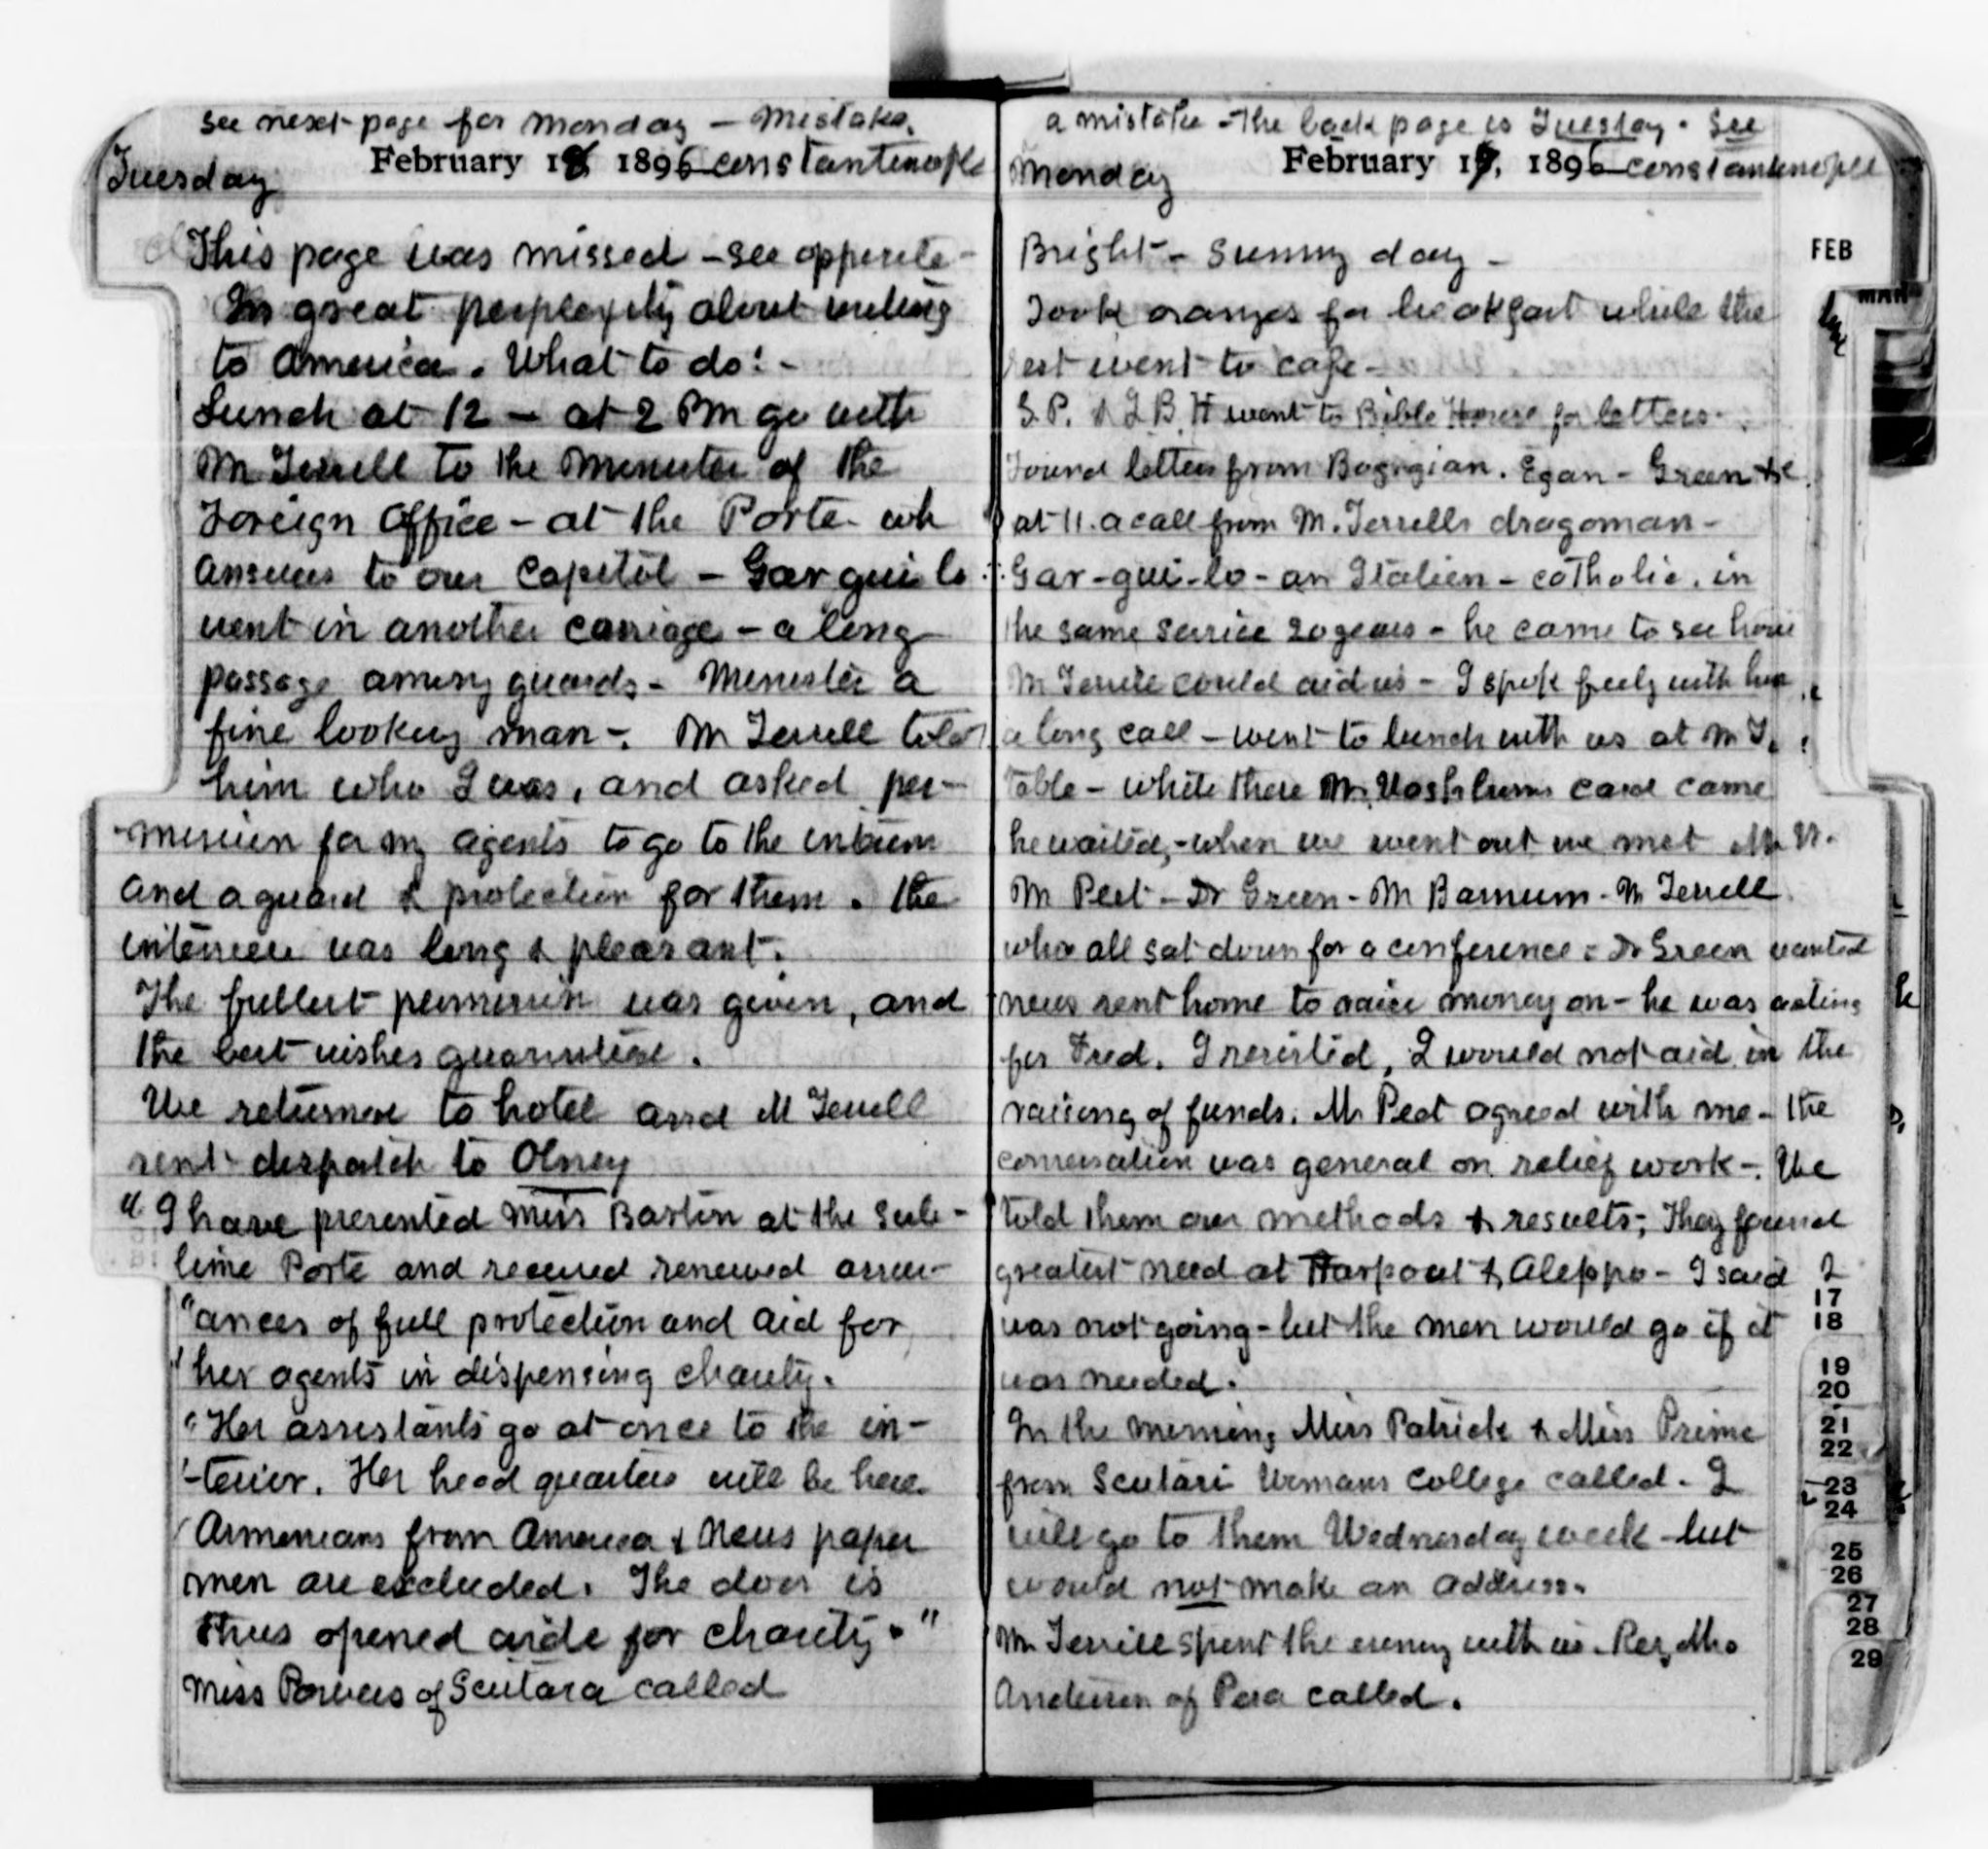 see next page for Monday - Mistake.
Tuesday February 18, 1896 - Constantinople
This page was missed - see opposite -
In great perplexity about writing
to America. What to do! -
Lunch at 12 - at 2 PM go with
Mr Terrell to the Minister of the
Foreign Office - at the Porte - wh
answers to our Capitol - Garguilo
went in another carriage - a long
passage among guards - Minister a
fine looking man -. Mr Terrell told
him who I was, and asked per-
-mission for my agents to go to the interior
and a guard & protection for them. The
interview was long & pleasant.
The fullest permission was given, and
the best wishes guaranteed.
We returned to hotel and Mr Terrell
sent dispatch to Olney
"I have presented Miss Barton at the Sub-
lime Porte and received renewed assur-
"ances of full protection and aid for
"her agents in dispensing charity.
"Her assistants go at once to the in-
"-terior. Her head quarters will be here.
Armenians from America & News paper
men are excluded. The door is
thus opened wide for charity."
Miss Powers of Scutara called
a mistake - The back page is Tuesday. See
Monday February 17, 1896 - Constantinople
Bright - sunny day -
Took oranges for breakfast while the
rest went to cafe -
G.P. & L B. H went to Bible House for letters.
Found letters from Bogigian. Egan - Green &c
at 11. a call from Mr. Terrells dragoman -
Gar-gui-lo - an Italien - catholic, in
the same service 20 years - he came to see how
Mr Terrell could aid us - I spok freely with him
a long call - went to lunch with us at Mr T.
table - while there Mr. Washburns card came
he waited, - when we went out we met Mr W.
Mr Peet - Dr Green - Mr Barnum - Mr Terrell
who all sat down for a conference : Dr Green wanted
news sent home to raise money on - he was acting
for Fred. I resisted, I would not aid in the
raising of funds. Mr Peet agreed with me - the
conversation was general on relief work -. We
told them our methods & results; They found
greatest need at Harpout & Aleppo - I said I
was not going - but the men would go if it
was needed.
In the morning Miss Patrick & Miss Prime
from Scutari Womans College called. I
will go to them Wednesday week - but
would not make an address.
Mr Terrell spent the evening with us. Rev, Mr
Anderson of Pera called.
FEB
MAR
17
18
19
20
21
22
23
24
25
26
27
28
29